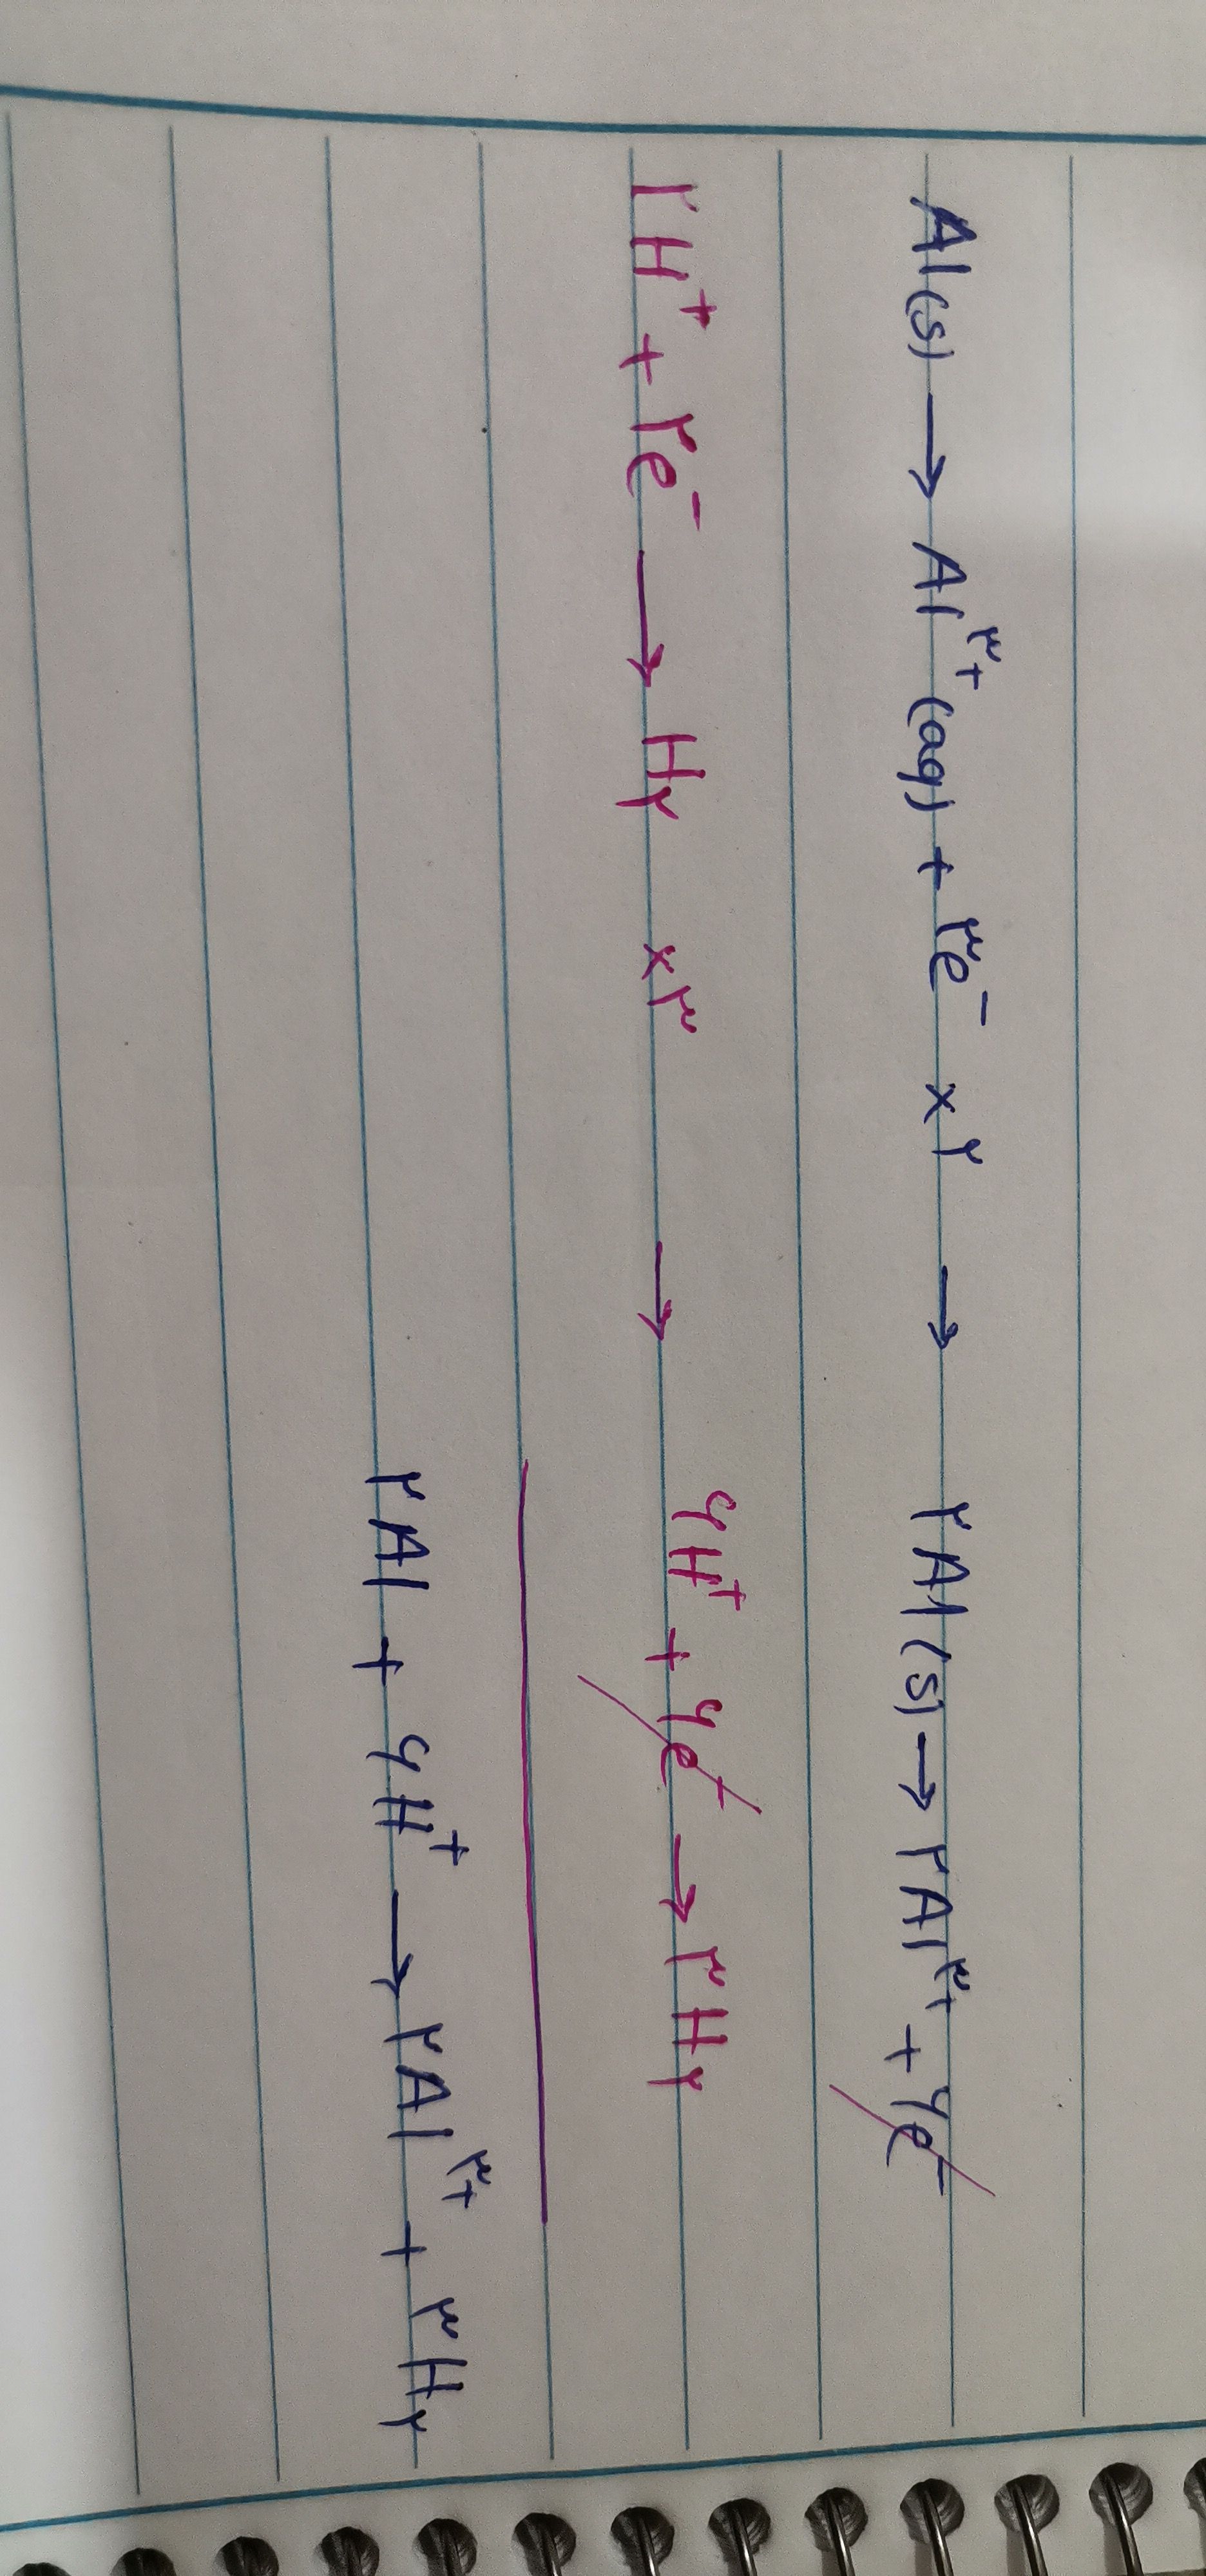 Al(s) → Al³⁺(aq) + ۳e⁻ ×۲ → ۲Al(s) → ۲Al³⁺ + ۶e⁻
۲H⁺ + ۲e⁻ → H₂ ×۳ → ۶H⁺ + ۶e⁻ → ۳H₂
۲Al + ۶H⁺ → ۲Al³⁺ + ۳H₂